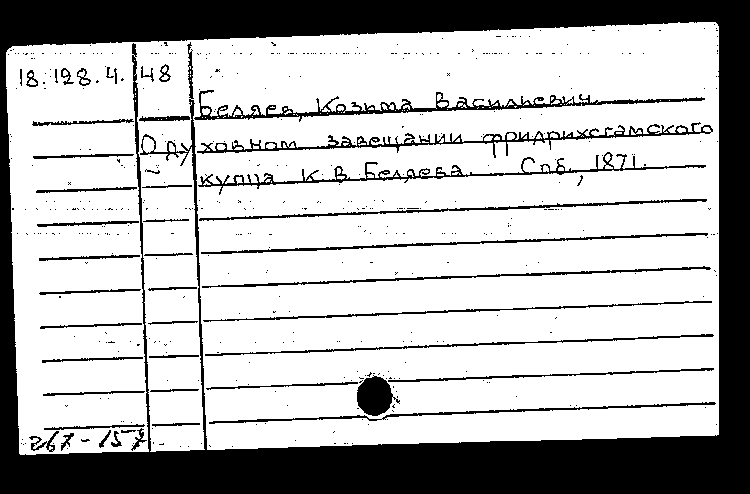 18.128.4. 48
Беляев, Козима Васильевич.
О духовном завещании фридрихсгамского
купца К. В. Беляева. Спб., 1871.
267-157